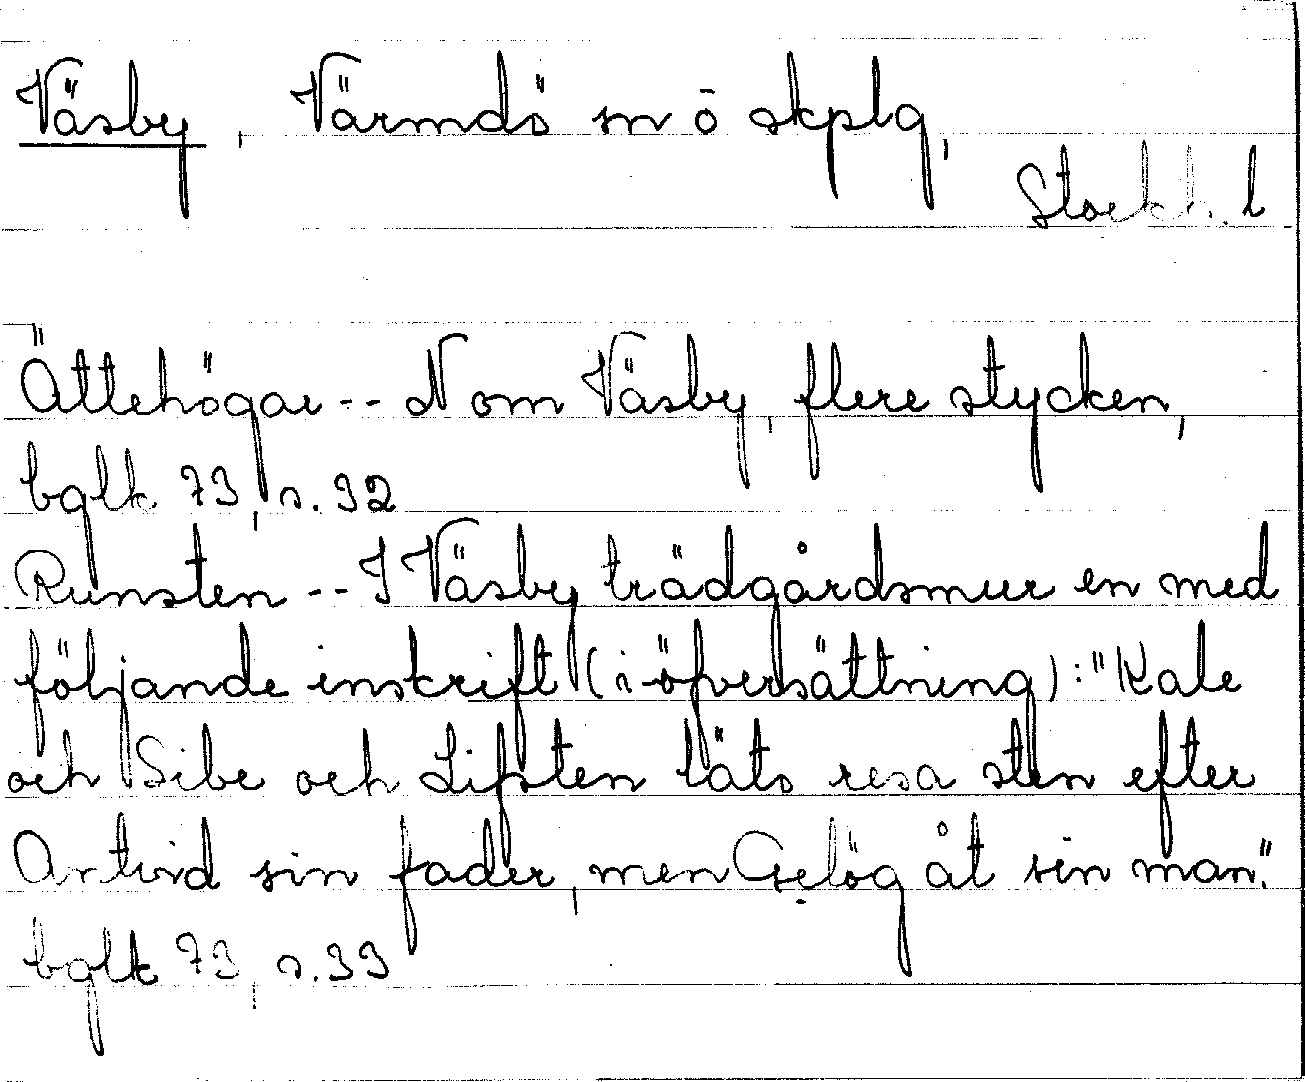 Väsby, Värmdö sn ö skplg,
Stockh. l
Ättehögar -- N om Väsby, flere stycken,
bglk 73, s. 32
Runsten -- I Väsby trädgårdsmur en med
följande inskrift (i öfversättning): "Kale
och Sibe och Lifsten läto resa sten efter
Antvid sin fader, men Gelög åt sin man."
bglk 73, s. 33